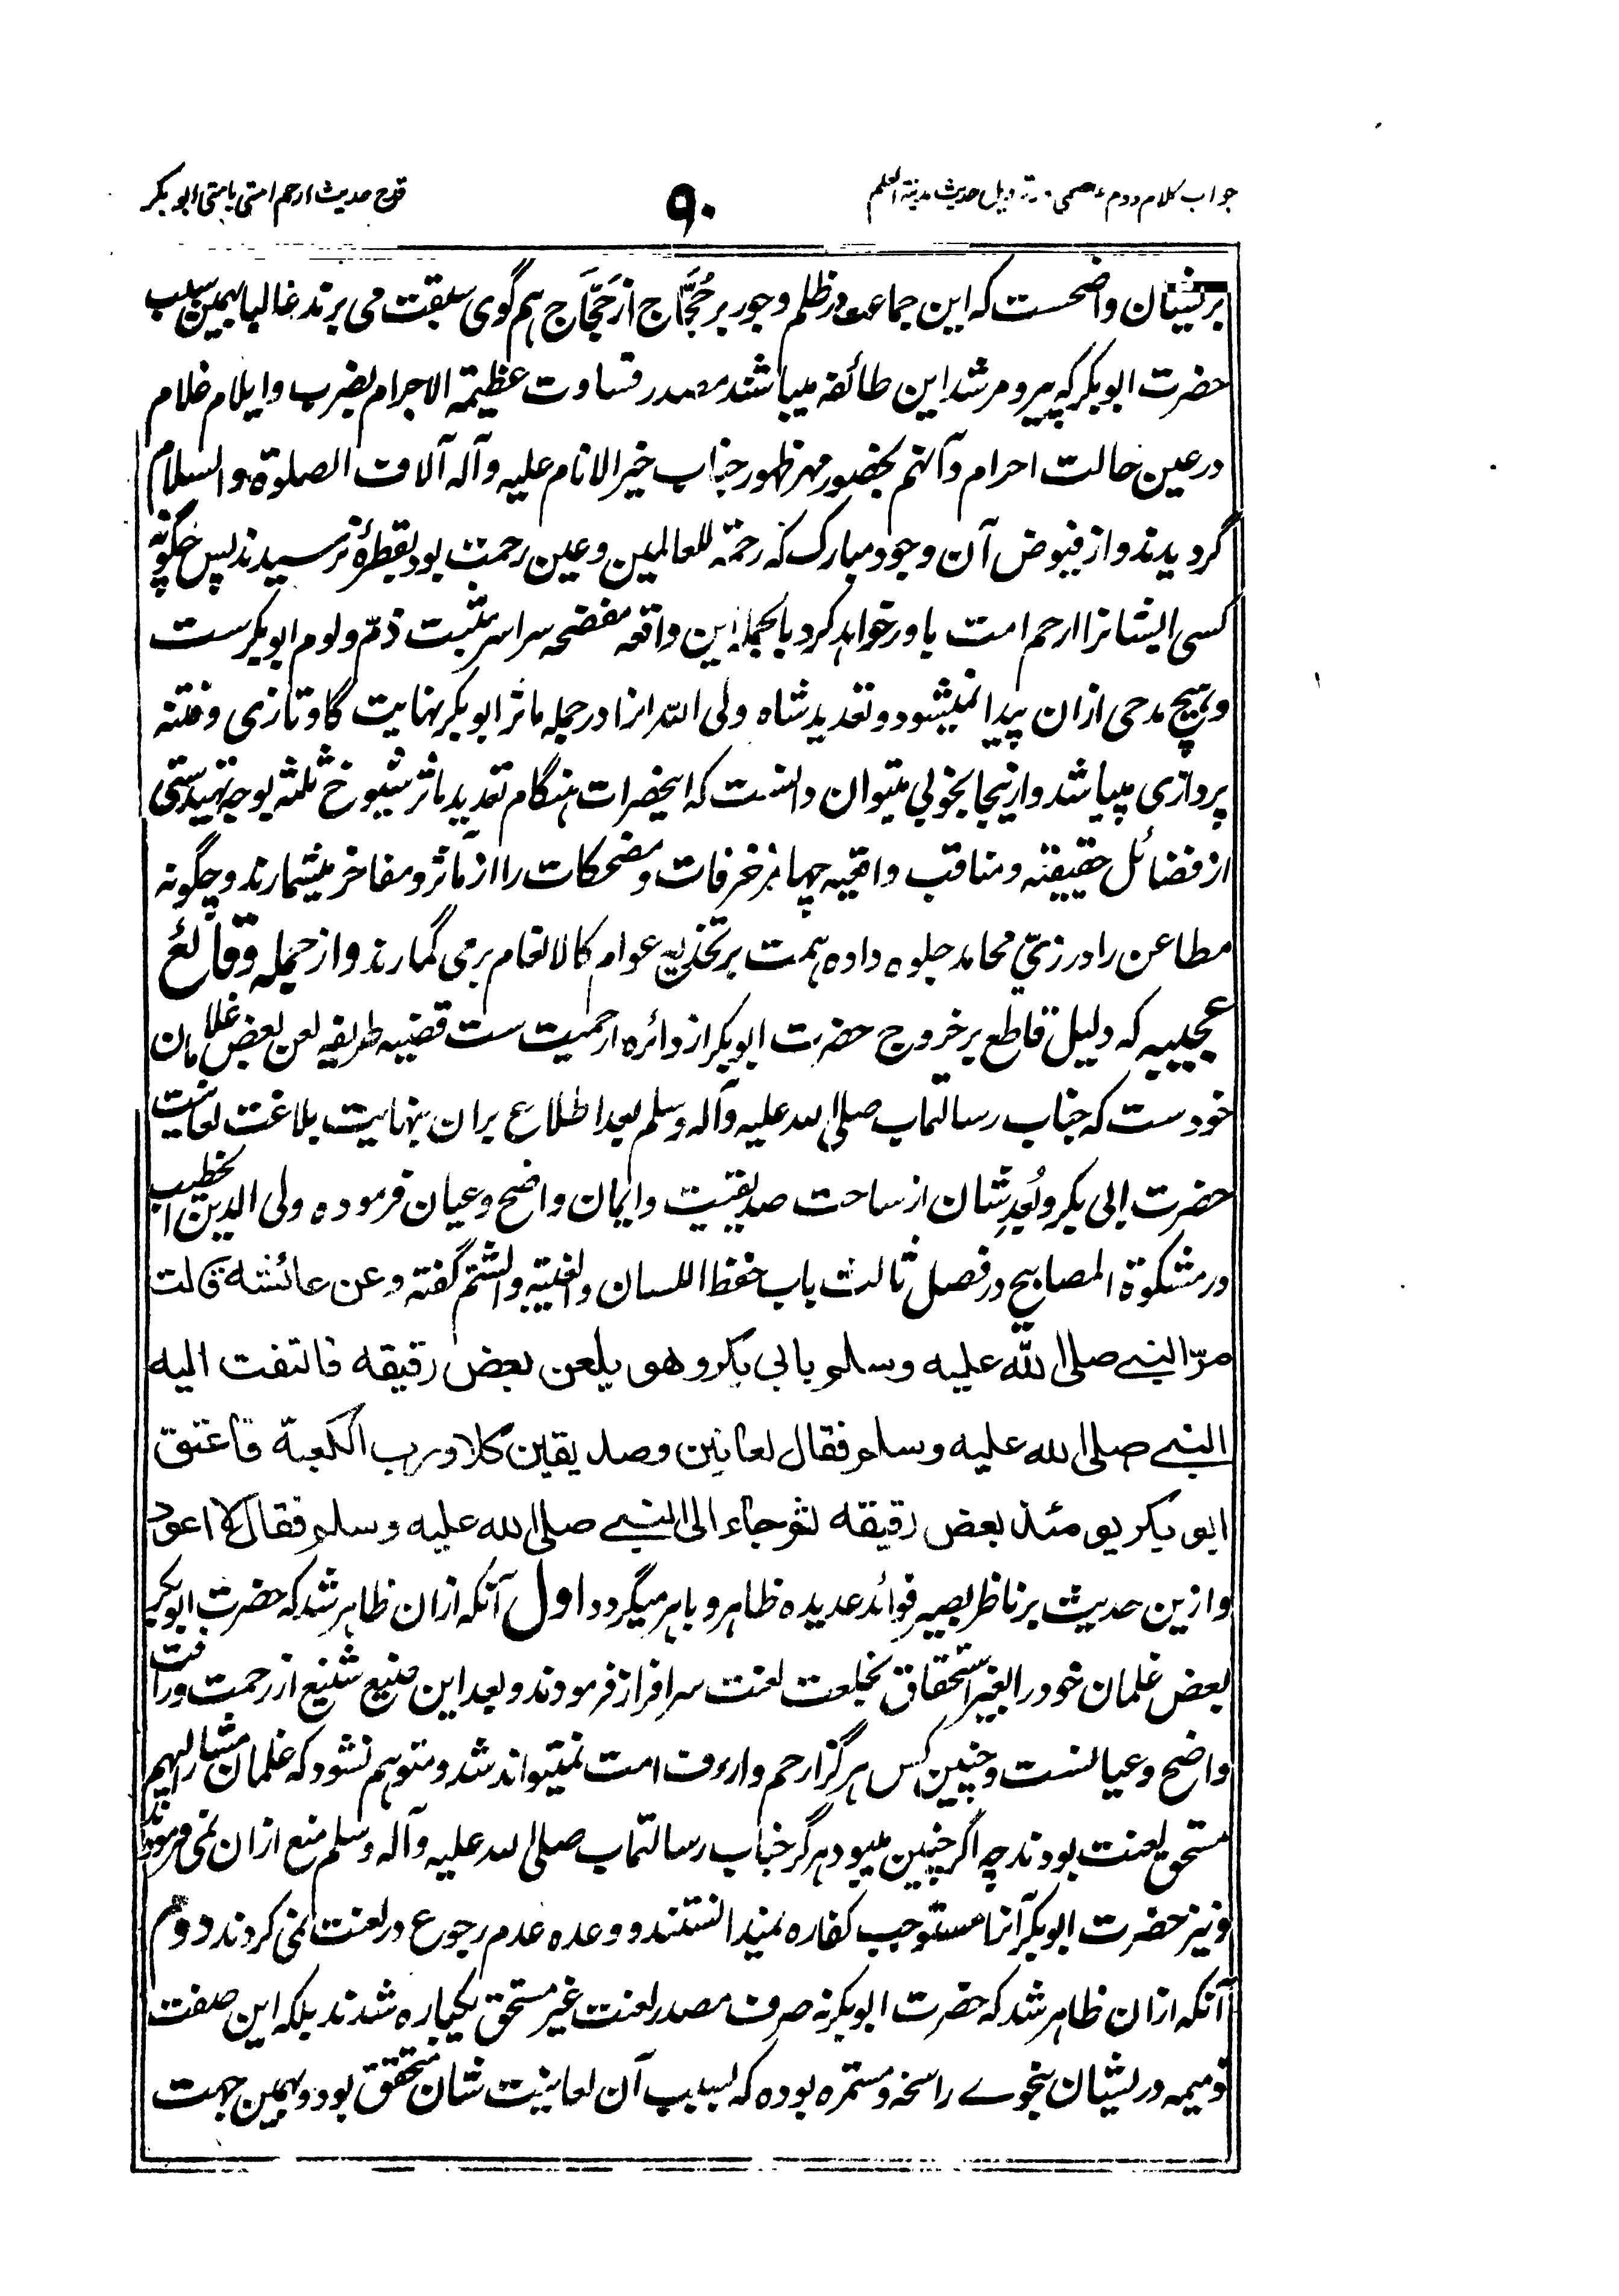 جواب کلام دوم عاصمی در تذییل حدیث مدینة العلم
۹۰
قدح حدیث ارحم امتی بامتی ابو بکر
بریشان واضحست که این جماعت در ظلم و جور بر حُجَّاج از حَجَّاج هم گوی سبقت می برند غالبا بهمین سبب
حضرت ابو بکر که پیر و مرشد این طائفه میباشند مصدر قساوت عظیمة الاجرام بضرب و ایلام غلام
در عین حالت احرام و آنهم بحضور مهر ظهور جناب خیر الانام علیه و آله آلاف الصلوة و السلام
گردیدند و از فیوض آن وجود مبارک که رحمة للعالمین و عین رحمت بود بقطرهٔ نرسیدند پس چگونه
کسی ایشانرا ارحم امت باور خواهد کرد بالجمله این واقعه مفضحه سراسر مثبت ذمّ و لوم ابو بکرست
و هیچ مدحی ازان پیدا نمیشود و تعدید شاه ولی الله انرا در جمله ماثر ابو بکر نهایت گاو تازی و فتنه
پردازی میباشد و ازینجا بخوبی میتوان دانست که ایحضرات هنگام تعدید مآثر شیوخ ثلثه بوجه تهیدستی
از فضائل حقیقیه و مناقب واقعیه چها مزخرفات و مضحکات را از مآثر و مفاخر میشمارند و چگونه
مطاعن را در زیّ محامد جلوه داده همت بر تخدیع عوام کالانعام بر می گمارند و از جمله وقائع
عجیبه که دلیل قاطع بر خروج حضرت ابو بکر از دائره ارحمیت ست قضیه طریفه لعن بعض غلامان
خودست که جناب رسالتماب صلی الله علیه و آله و سلم بعد اطلاع بران بنهایت بلاغت لعانیت
حضرت ابی بکر و بُعدِ شان از ساحت صدیقیت و ایمان واضح و عیان فرموده ولی الدین الخطیب
در مشکوة المصابیح در فصل ثالث باب حفظ اللسان و الغیبة و الشتم گفته و عن عائشة قالت
مرّ النبی صلی الله علیه وسلم بابی بکر وهو یلعن بعض رقیقه فالتفت الیه
النبی صلی الله علیه وسلم فقال لعانین وصدیقین کلا ورب الکعبة فاعتق
ابو بکر یومئذ بعض رقیقه ثم جاء الی النبی صلی الله علیه وسلم فقال لا اعود
و ازین حدیث بر ناظر بصیر فوائد عدیده ظاهر و باهر میگردد اول آنکه ازان ظاهر شد که حضرت ابو بکر
بعض غلمان خود را بغیر استحقاق بخلعت لعنت سرافراز فرمودند و بعد این صنیع شنیع از رحمت و رافت
واضح و عیانست و چنین کس هرگز ارحم و ارءف امت نمیتواند شد و متوهم نشود که غلمان مشار الیهم
مستحق لعنت بودند چه اگر چنین میبود هرگز جناب رسالتماب صلی الله علیه و آله و سلم منع ازان نمی فرمودند
و نیز حضرت ابو بکر آنرا مستوجب کفاره نمیدانستند و وعده عدم رجوع در لعنت نمی کردند دوم
آنکه ازان ظاهر شد که حضرت ابو بکر نه صرف مصدر لعنت غیر مستحق یکباره شدند بلکه این صفت
ذمیمه در ایشان بنحوے راسخه و مستمره بوده که بسبب آن لعانیت شان متحقق بود و بهمین جهت